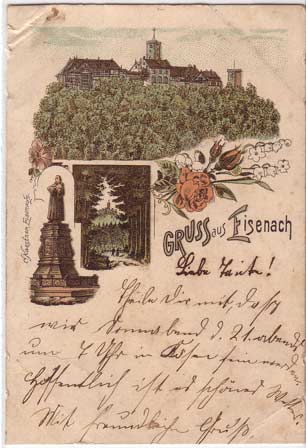 GRUSS aus Eisenach
Liebe Tante!
Theile Dir mit, dass
wir Sonnabend d. 21. abends
um 7 Uhr in Kösen sein werden
Hoffentlich ist es schönes Wetter
Mit freundlichem Gruß